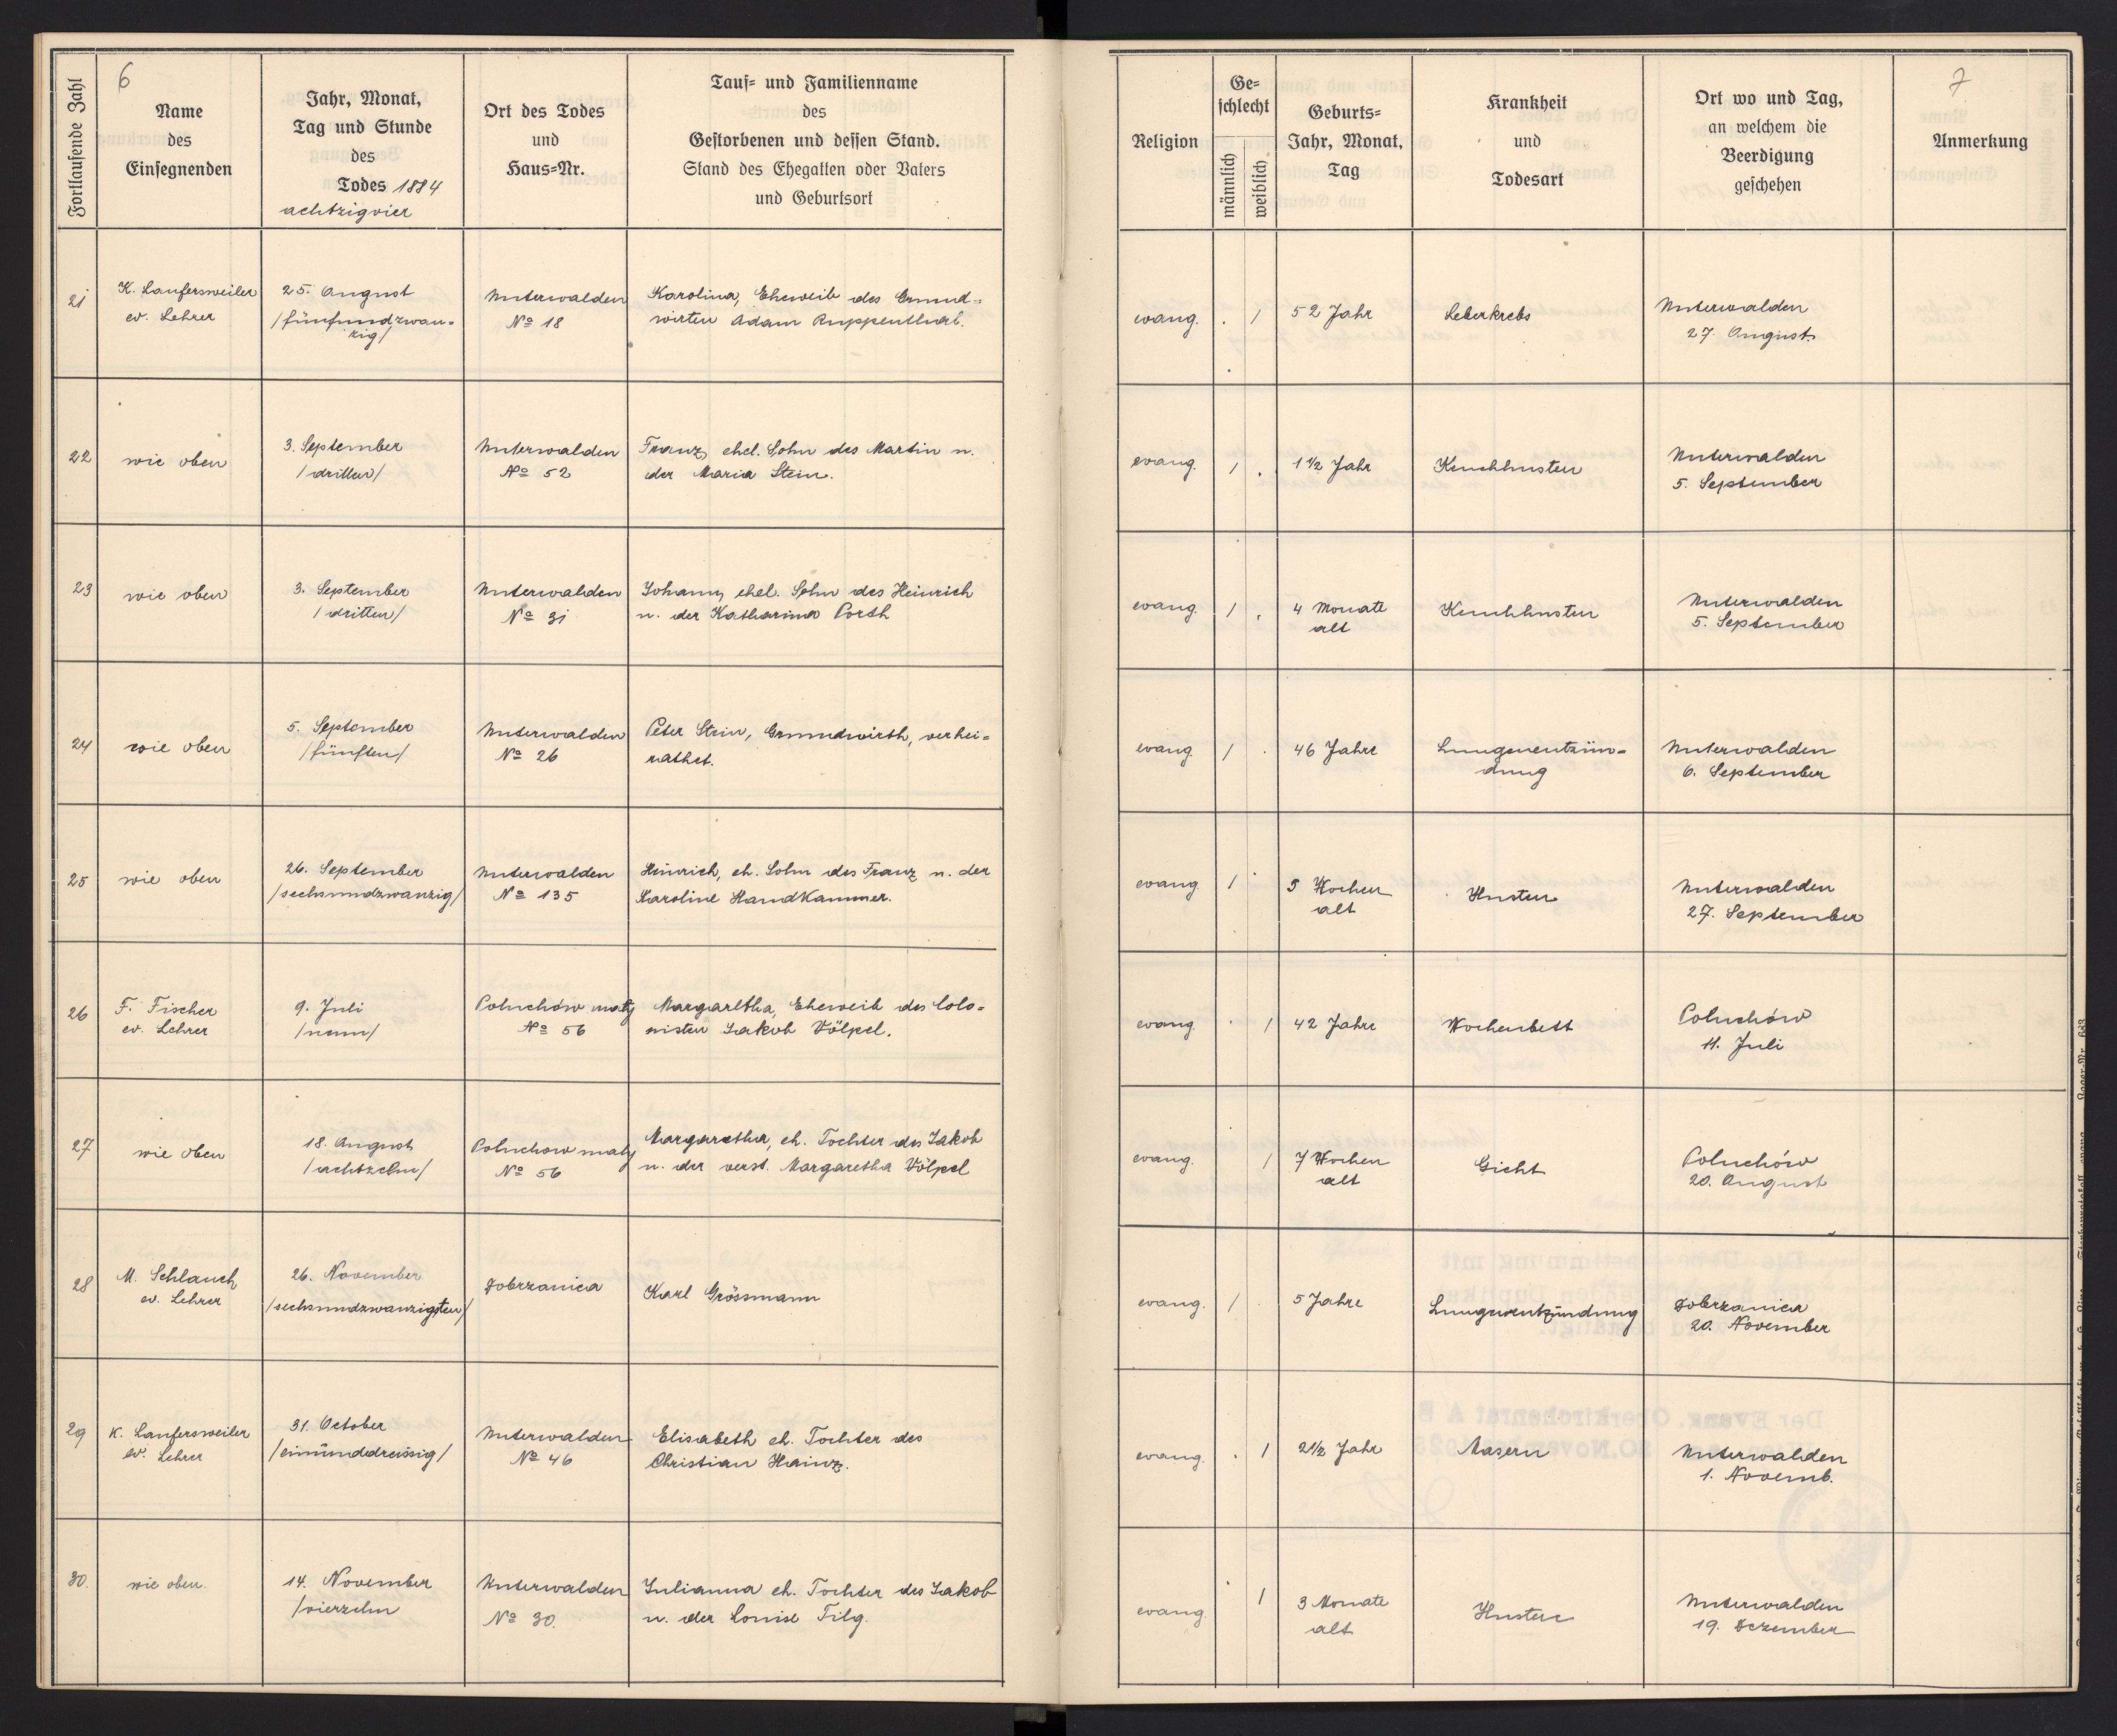 6
7
Fortlaufende Zahl
Name
des
Einsegnenden
Jahr, Monat,
Tag und Stunde
des
Todes 1884
achtzigvier
Ort des Todes
und
Haus-Nr.
Tauf- und Familienname
des
Gestorbenen und dessen Stand.
Stand des Ehegatten oder Vaters
und Geburtsort
Religion
Ge-
schlecht
männlich
weiblich
Geburts-
Jahr, Monat,
Tag
Krankheit
und
Todesart
Ort wo und Tag,
an welchem die
Beerdigung
geschehen
Anmerkung
21
K. Laufersweiler
ev. Lehrer
25. August
/fünfundzwan-
zig/
Unterwalden
No 18
Karolina, Eheweib des Grund-
wirten Adam Ruppenthal.
evang.
. /
52 Jahr
Leberkrebs
Unterwalden
27. August
22
wie oben
3. September
/dritten/
Unterwalden
No 52
Franz, ehel. Sohn des Martin u.
der Maria Stein.
evang.
/ .
1 1/2 Jahr
Keuchhusten
Unterwalden
5. September
23
wie oben
3. September
/dritten/
Unterwalden
No 31
Johann, ehel. Sohn des Heinrich
u. der Katharina Porth
evang.
/ .
4 Monate
alt
Keuchhusten
Unterwalden
5. September
24
wie oben
5. September
/fünften/
Unterwalden
No 26
Peter Stein, Grundwirth, verhei-
rathet.
evang.
/ .
46 Jahre
Lungenentzün-
dung
Unterwalden
6. September
25
wie oben
26. September
/sechsundzwanzig/
Unterwalden
No 135
Heinrich, eh. Sohn des Franz u. der
Karoline Handkammer.
evang.
/ .
5 Wochen
alt
Husten
Unterwalden
27. September
26
F. Fischer
ev. Lehrer
9. Juli
/neun/
Poluchów mały
No 56
Margaretha, Eheweib des Colo-
nisten Jakob Völpel.
evang.
. /
42 Jahre
Wochenbett
Poluchów
11. Juli
27
wie oben
18. August
/achtzehn/
Poluchow mały
No 56
Margaretha, eh. Tochter des Jakob
u. der verst. Margaretha Völpel
evang.
/
7 Wochen
alt
Gicht
Poluchów
20. August
28
M. Schlauch
ev. Lehrer
26. November
/sechsundzwanzigsten/
Dobrzanica
Karl Grössmann
evang.
/ .
5 Jahre
Lungenentzündung
Dobrzanica
20. November
29
K. Laufersweiler
ev. Lehrer
31. October
/einunddreissig/
Unterwalden
No 46
Elisabeth eh. Tochter des
Christian Hainz.
evang.
. /
2 1/2 Jahr
Masern
Unterwalden
1. Novemb.
30.
wie oben.
14. November
/vierzehn
Unterwalden
No 30.
Julianna eh. Tochter des Jakob
u. der Louise Filg.
evang.
. /
3 Monate
alt
Husten
Unterwalden
19. Dezember